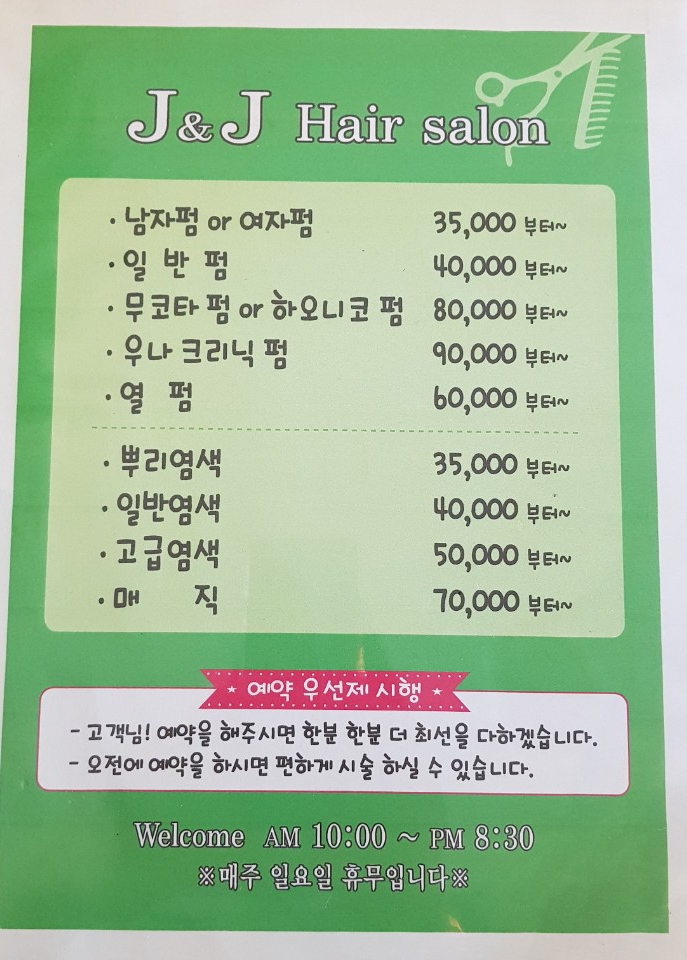 J&J Hair salon
· 남자펌 or 여자펌 35,000 부터~
· 일 반 펌 40,000 부터~
· 무코타 펌 or 하오니코 펌 80,000 부터~
· 우나 크리닉 펌 90,000 부터~
· 열 펌 60,000 부터~
· 뿌리염색 35,000 부터~
· 일반염색 40,000 부터~
· 고급염색 50,000 부터~
· 매 직 70,000 부터~
★ 예약 우선제 시행 ★
- 고객님! 예약을 해주시면 한분 한분 더 최선을 다하겠습니다.
- 오전에 예약을 하시면 편하게 시술 하실 수 있습니다.
Welcome AM 10:00 ~ PM 8:30
※매주 일요일 휴무입니다※